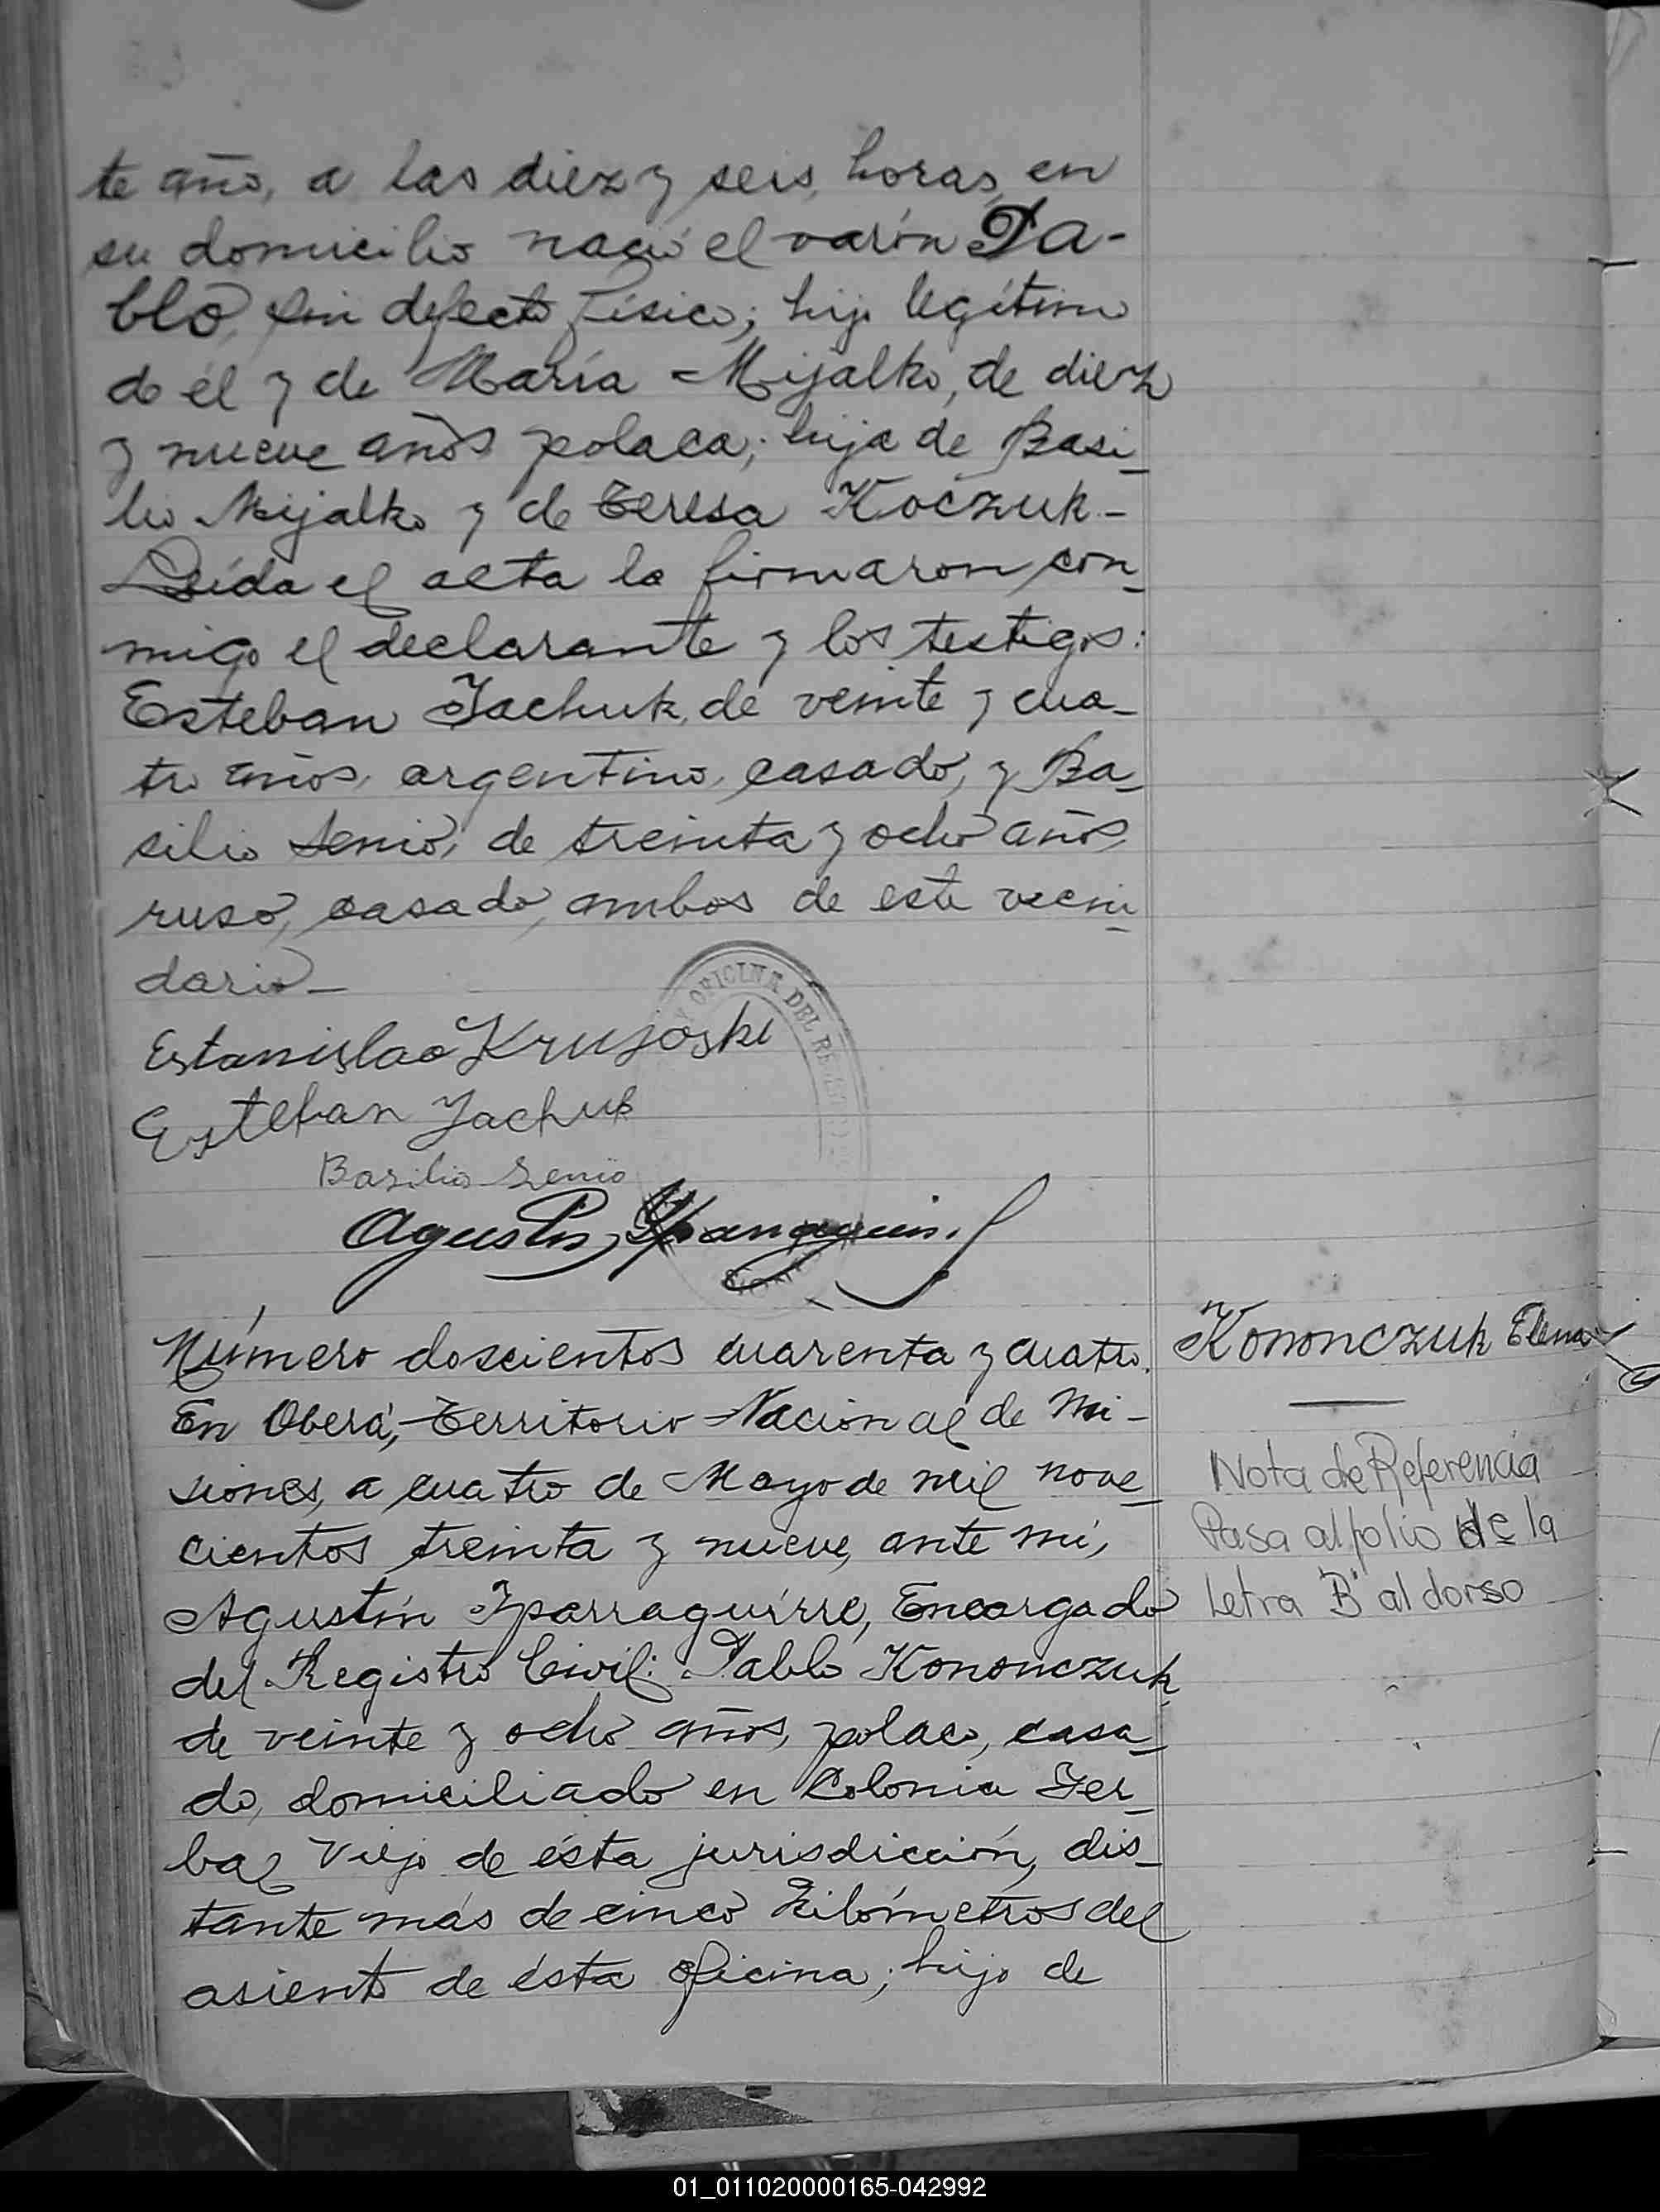 te año, a las diez y seis horas, en
su domicilio nació el varón Pa-
blo, sin defecto físico; hijo legítimo
de él y de María Mijalko, de diez
y nueve años polaca; hija de Basi_
lio Mijalko y de Teresa Koczuk-
Leída el acta la firmaron con_
migo el declarante y los testigos:
Esteban Jachuk, de veinte y cua_
tro años, argentino, casado, y Ba_
silio Senio, de treinta y ocho años,
ruso, casado, ambos de este vecin_
dario_
Estanislao Krujoski
Esteban Jachuk
Basilio Senio
Agustín
OFICINA DEL
Número doscientos cuarenta y cuatro.
En Oberá, Territorio Nacional de Mi-
siones, a cuatro de Mayo de mil nove_
cientos treinta y nueve, ante mí,
Agustín Yparraguirre, Encargado
del Registro Civil: Pablo Kononczuk,
de veinte y ocho años, polaco, casa_
do, domiciliado en Colonia Yer_
bal Viejo de ésta jurisdicción, dis_
tante más de cinco kilómetros del
asiento de ésta oficina; hijo de
Kononczuk Elena
Nota de Referencia
Pasa al folio de la
Letra "B" al dorso
01_011020000165-042992